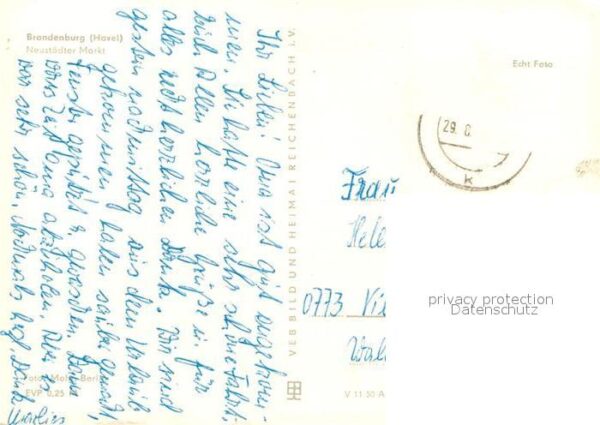 Brandenburg (Havel)
Neustädter Markt
Ihr Lieben! Uma ist gut angekom-
men. Sie hatte eine sehr schöne Fahrt.
Euch Allen herzliche Grüße u. für
alles recht herzlichen Dank. Wir sind
gestern nachmittag aus dem Urlaub
gekommen, haben sauber gemacht,
Fenster geputzt u. gewaschen, dann
Oma abzuholen. Es
war sehr schön. Nochmals
Marlies
EVP 0,25
VEB BILD UND HEIMAT REICHENBACH i. V.
V 11 50 A
Echt Foto
29. 8.
k
Frau
Hele
0773 Vi
privacy protection
Datenschutz